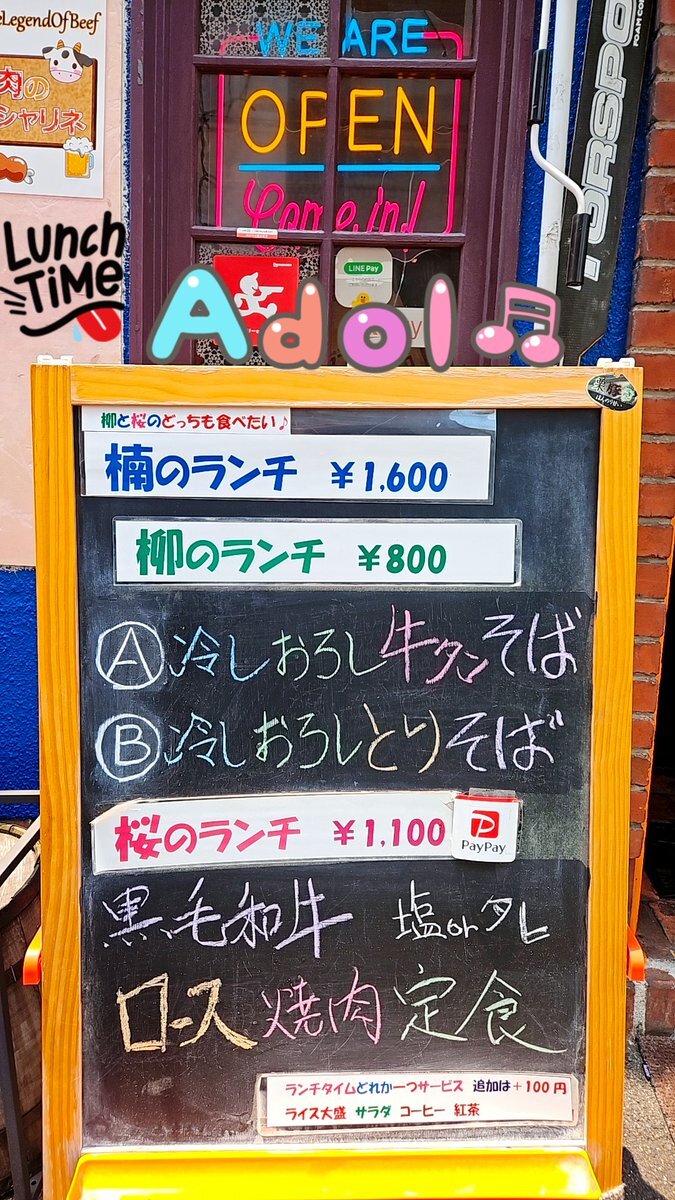 eLegendOfBeef
肉の
シャリネ
WE ARE
OPEN
Come in!
LUNCH
TIME
LINE Pay
Adol♫
柳と桜のどっちも食べたい♪
楠のランチ ¥1,600
柳のランチ ¥800
Ⓐ冷しおろし牛タンそば
Ⓑ冷しおろしとりそば
桜のランチ ¥1,100
PayPay
黒毛和牛 塩orタレ
ロース焼肉定食
ランチタイムどれか一つサービス 追加は+100円
ライス大盛 サラダ コーヒー 紅茶